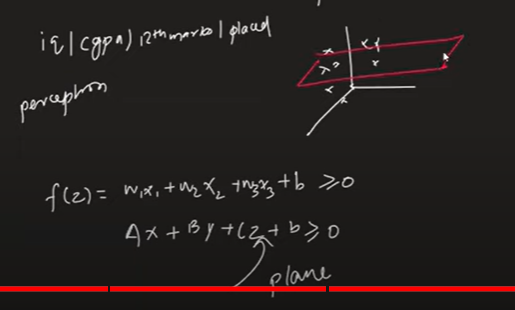 iq | cgpa | 12th marks | placed
perceptron
f(z) = w₁x₁ + w₂x₂ + w₃x₃ + b ≥ 0
Ax + By + Cz + b ≥ 0
plane